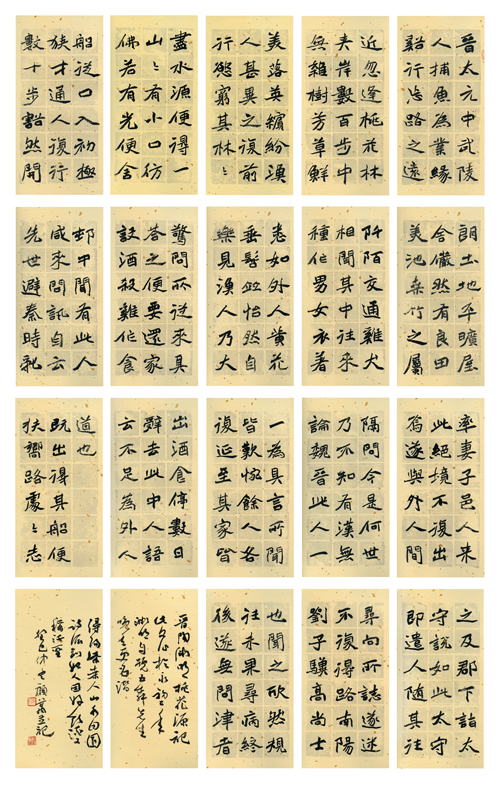 晉太元中武陵
人捕魚為業緣
谿行忘路之遠
近忽逢桃花林
夹岸數百步中
無雜樹芳草鮮
美落英繽紛漁
人甚異之復前
行慾窮其林〻
盡水源便得一
山〻有小口仿
佛若有光便舍
船從口入初極
狹才通人復行
數十步豁然開
朗土地平曠屋
舍儼然有良田
美池桑竹之屬
阡陌交通雞犬
相聞其中往來
種作男女衣著
悉如外人黄髮
垂髫並怡然自
樂見漁人乃大
驚問所從來具
答之便要還家
設酒殺雞作食
邨中聞有此人
咸來問訊自云
先世避秦時亂
率妻子邑人來
此絕境不復出
焉遂與外人間
隔問今是何世
乃不知有漢無
論魏晉此人一
一為具言所聞
皆歎惋餘人各
復延至其家皆
出酒食停數日
辭去此中人語
云不足為外人
道也
既出得其船便
扶嚮路處〻志
之及郡下詣太
守說如此太守
即遣人隨其往
尋向所誌遂迷
不復得路南陽
劉子驥高尚士
也聞之欣然規
往未果尋病終
後遂無問津者
晉陶淵明桃花源記